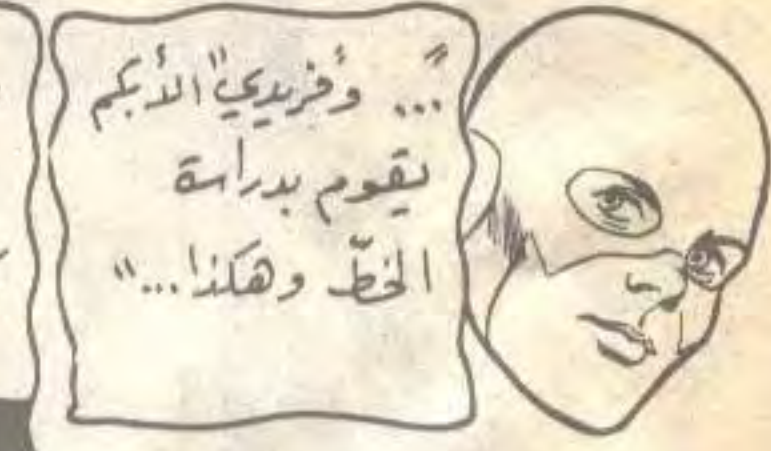 "... و"فريدي" الأبكم
يقوم بدراسة
الخطّ وهكذا..."